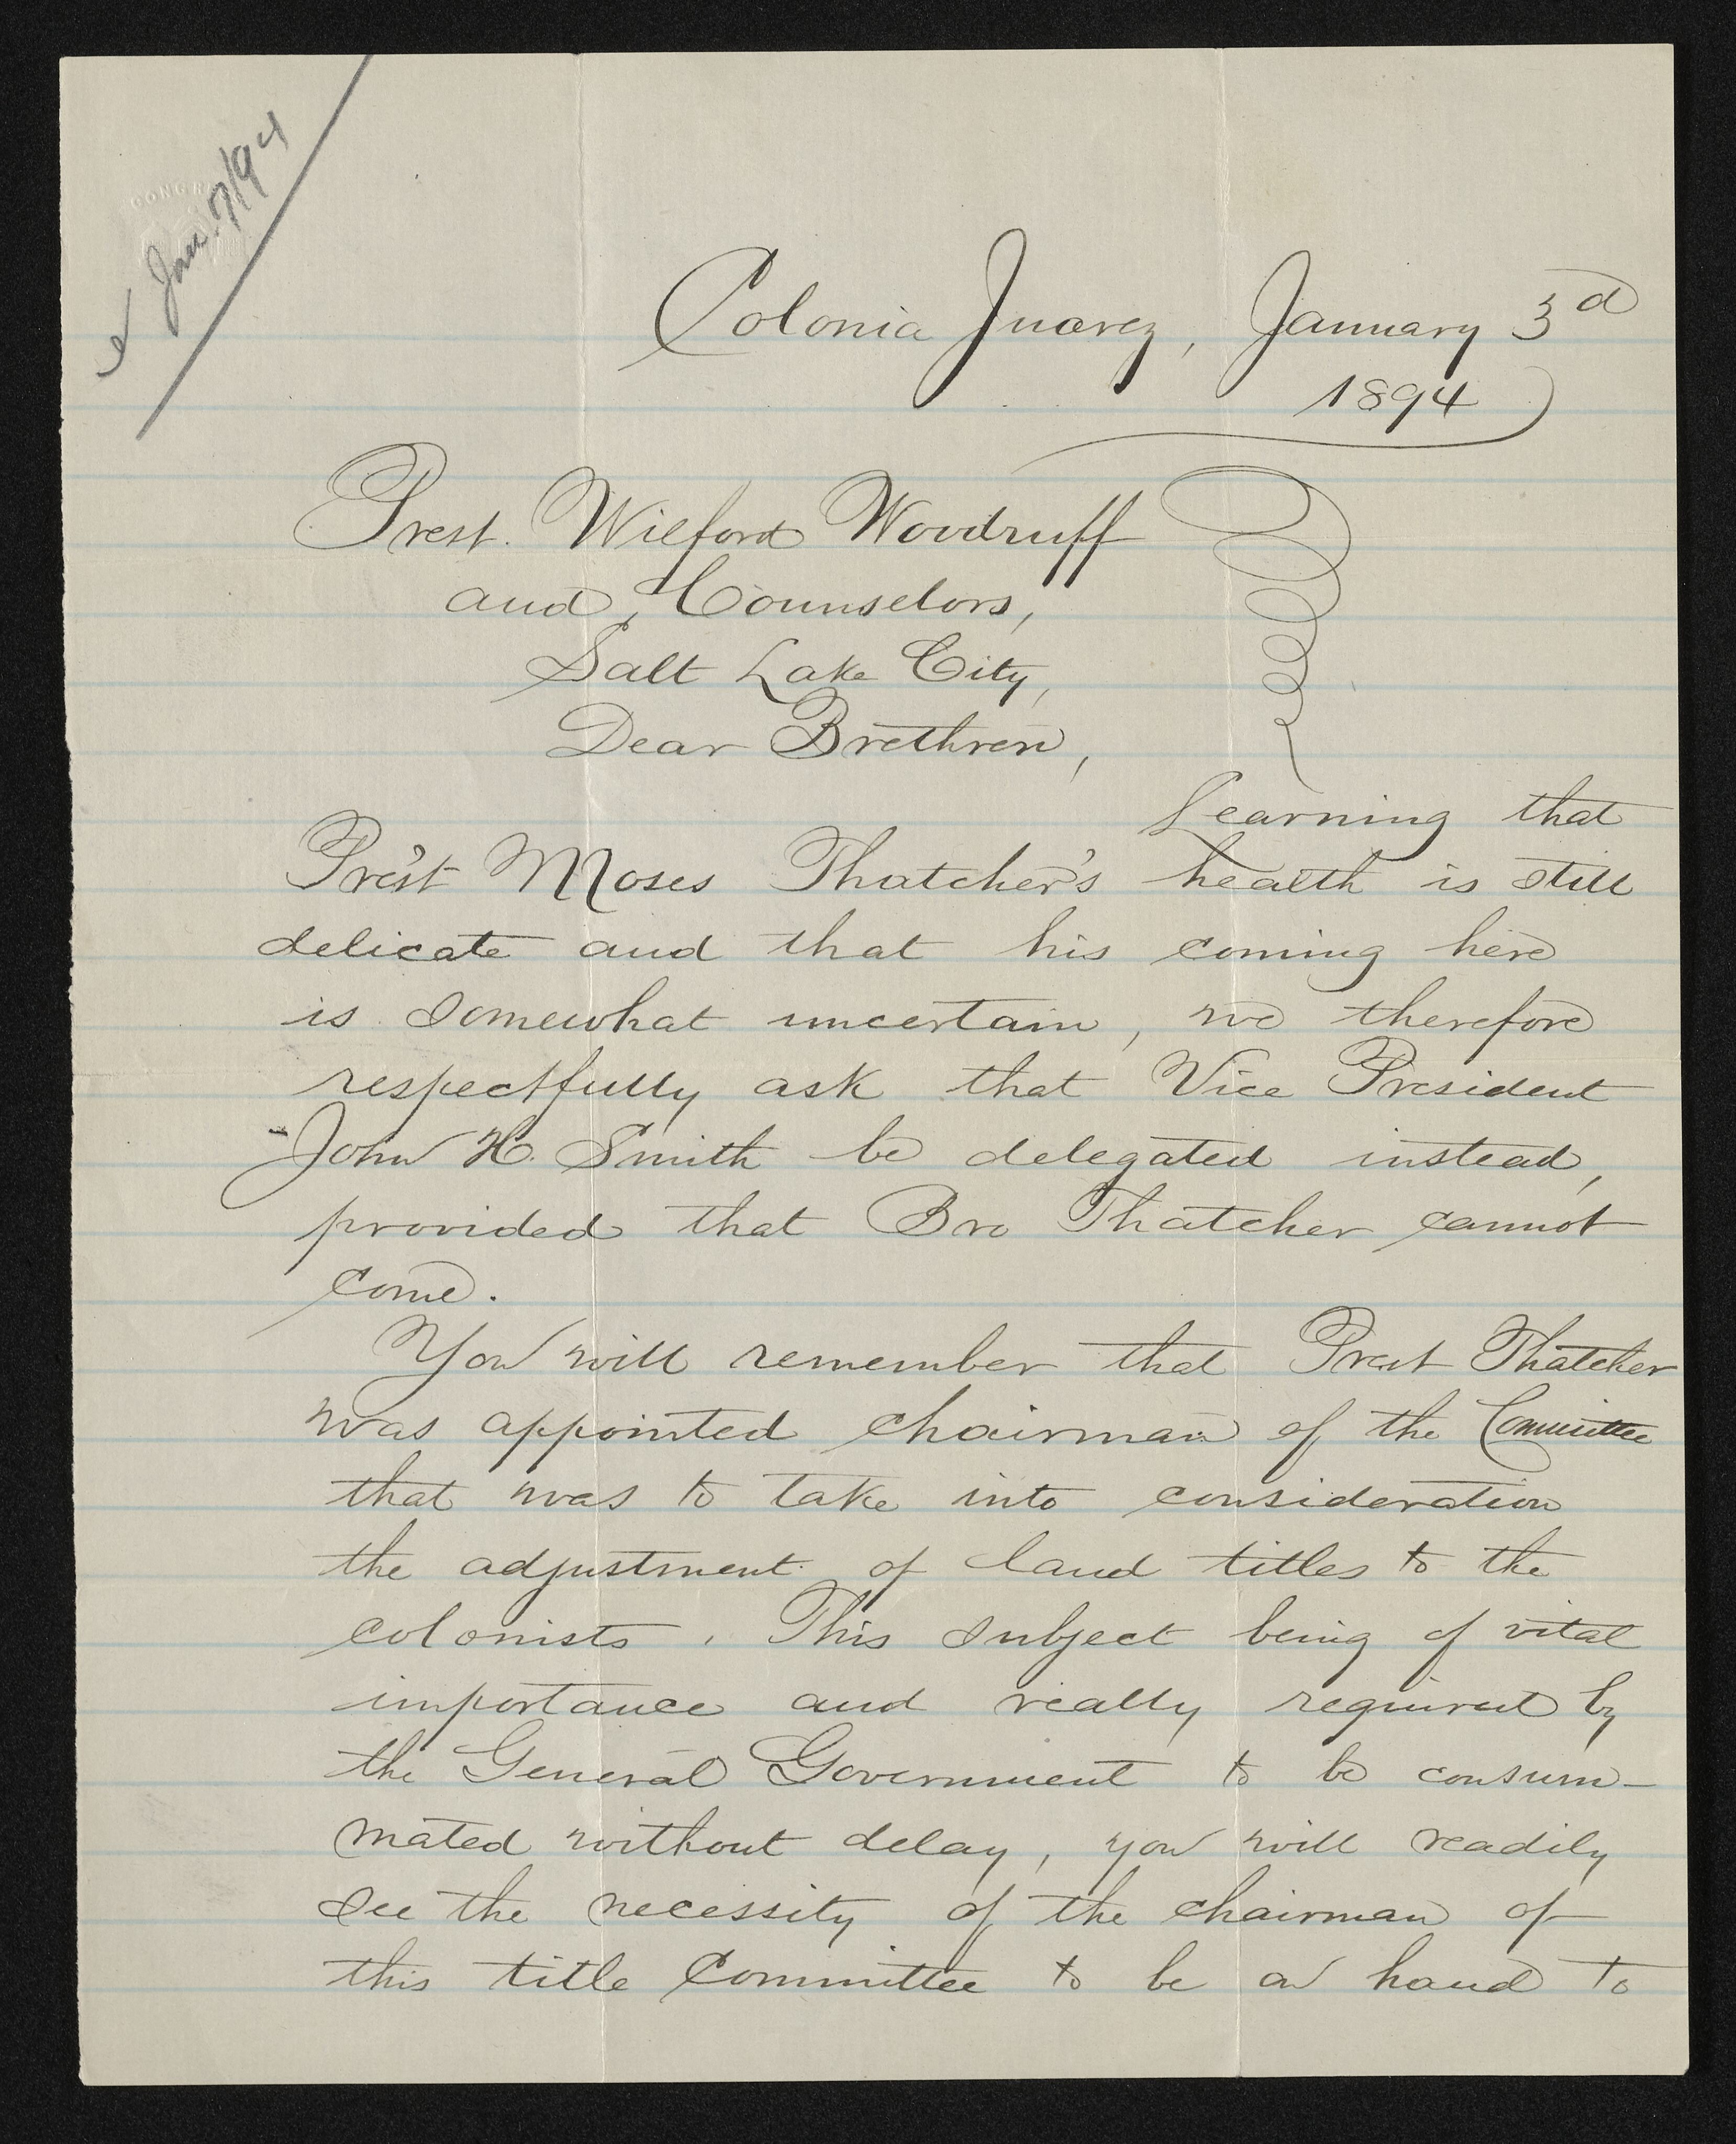 Jan. 7/94
Colonia Juarez, January 3d
1894
Prest. Wilford Woodruff
and Counselors,
Salt Lake City,
Dear Brethren,
Learning that
Pres't Moses Thatcher's health is still
delicate and that his coming here
is somewhat uncertain, we therefore
respectfully ask that Vice President
John H. Smith be delegated instead,
provided that Bro Thatcher cannot
come.
You will remember that Prest Thatcher
was appointed chairman of the Committee
that was to take into consideration
the adjustment of land titles to the
colonists. This subject being of vital
importance and really required by
the General Government to be consum-
mated without delay, you will readily
see the necessity of the chairman of
this title Committee to be on hand to